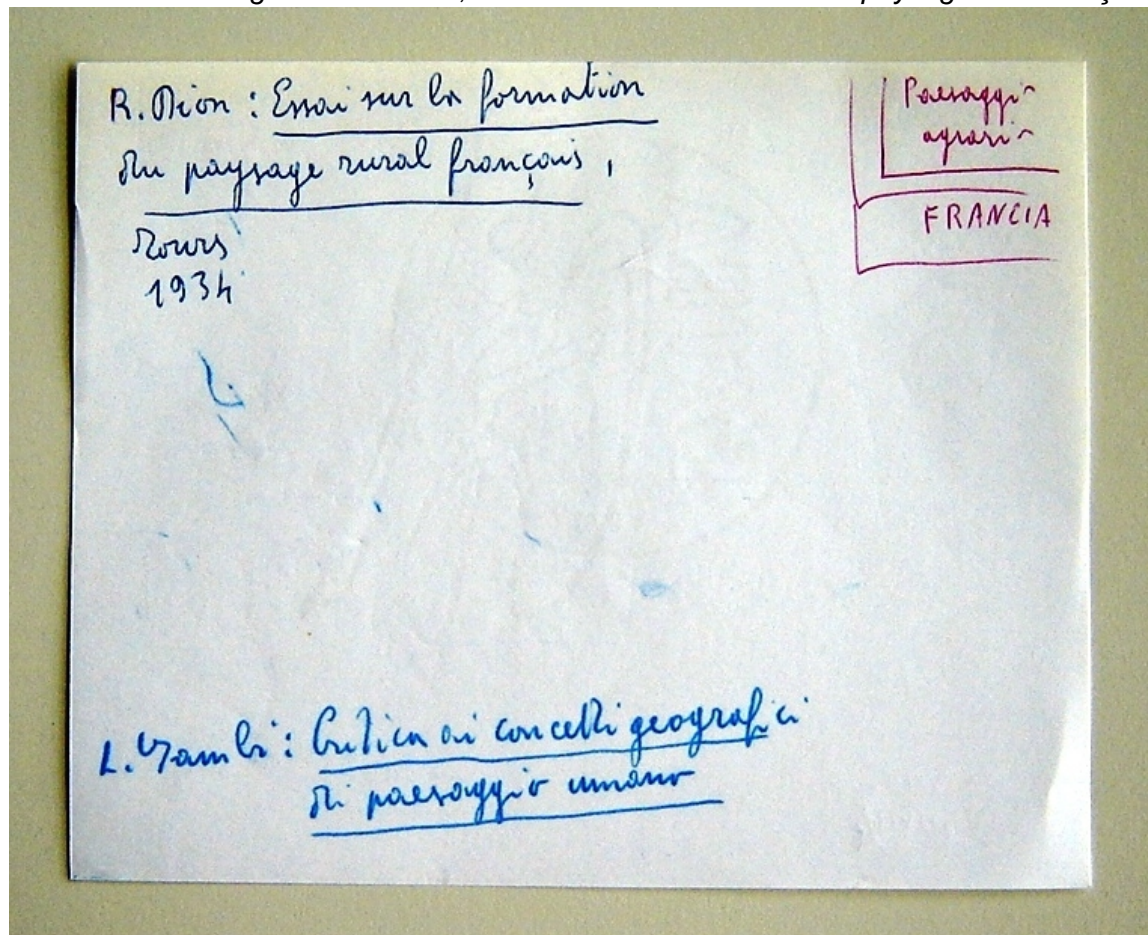 R. Dion : Essai sur la formation
du paysage rural français,
Tours
1934
Paesaggi
agrari
FRANCIA
L. Gambi : Critica ai concetti geografici
di paesaggio umano